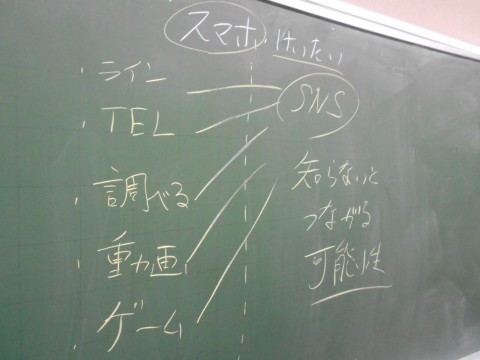 スマホ けいたい
・ライン
・TEL
・調べる
・動画
・ゲーム
SNS
知らない人と
つながる
可能性